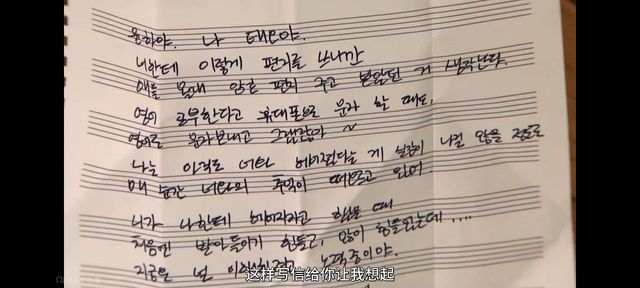 윤하야. 나 태오야.
너한테 이렇게 편지를 쓰니깐
몰래 영어 편지 주고 받았던 거 생각난다.
영어 공부한다고 휴대폰으로 문자 할 때도,
영어로 문자보내고 그랬잖아~
나는 아직도 너와 헤어졌다는 게 실감이 나질 않을 정도로
매 순간 너와의 추억이 떠오르고 있어.
니가 나한테 헤어지자고 했을 때
처음엔 받아들이기 힘들고, 많이 힘들었는데....
지금은 널 노력중이야.
这样写信给你让我想起